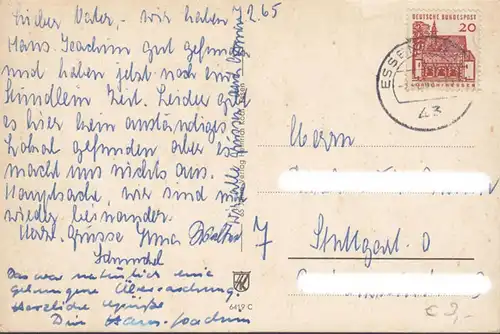 Lieber Vater, wir haben 7.2.65
Hans-Joachim gut gefunden
und haben jetzt noch ein
Stündlein Zeit. Leider
es hier kein anständiges
Lokal gefunden aber es
macht uns nichts aus.
Hauptsache, wir sind
wieder beinander.
Herzl. Grüsse Irma Walter
Das war natürlich eine
gelungene Überraschung.
Herzliche Grüße
Dein Hans-Joachim
6419 C
DEUTSCHE BUNDESPOST
20
LORSCH/HESSEN
ESSEN
43
Herrn
7 Stuttgart O
€ 3,-